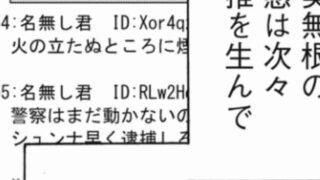 4:名無し君 ID:Xor4q
火の立たぬところに煙
5:名無し君 ID:RLw2H
警察はまだ動かないの
シュンナ早く逮捕しろ
無根の
惑は次々
を生んで